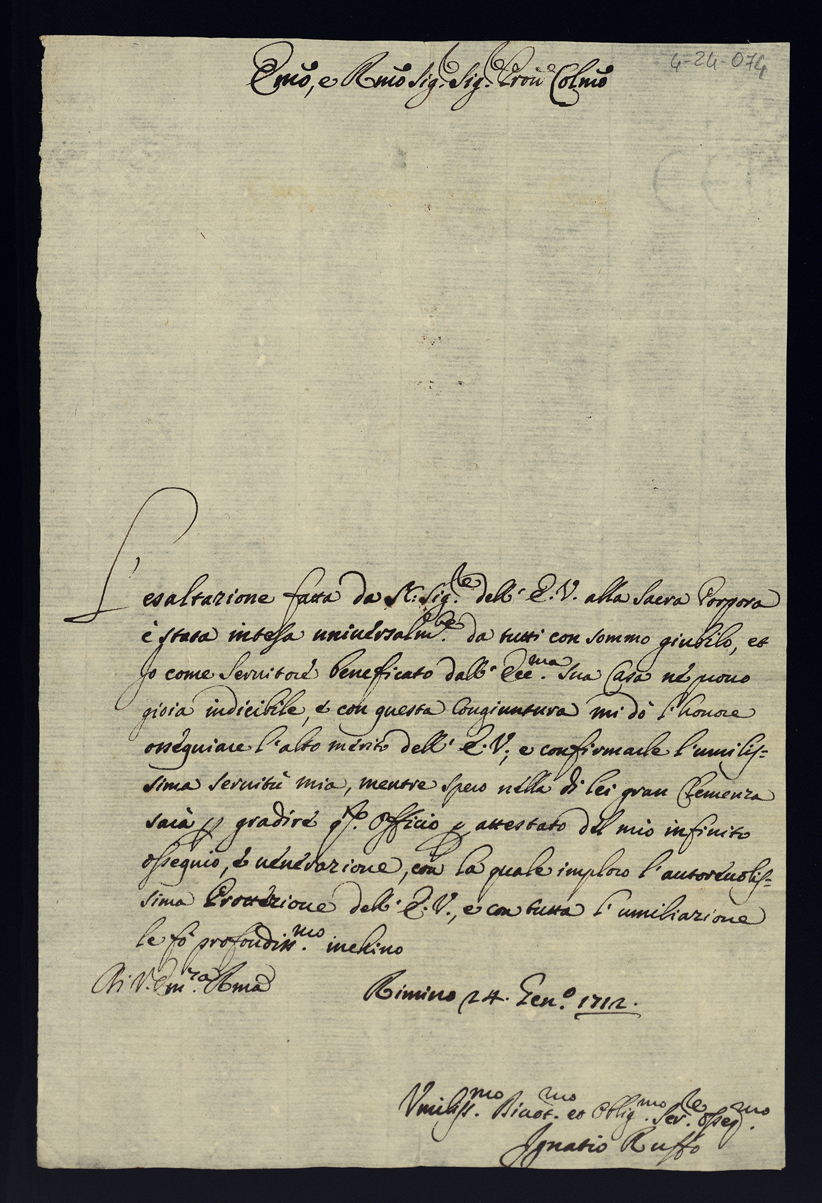 4-24-074
Emo, e Rmo Sig.r Sig.r Pron Colmo
L'esaltazione fatta da N. Sig.re dell'E.V. alla Sacra Porpora
è stata intesa universalm.te da tutti con sommo giubilo, et
Jo come Servitore beneficato dall'Ecc.ma Sua Casa ne prouo
gioia indicibile, e con questa Congiuntura mi dò l'honore
ossequiare l'alto merito dell'E.V., e confirmarle l'umilis-
sima servitù mia, mentre spero nella di lei gran Clemenza
sarà p gradire q.to Officio p attestato del mio infinito
ossequio, e venerazione, con la quale imploro l'autoreuolis-
sima Protezione dell'E.V., e con tutta l'umiliazione
le fò profondiss.mo inchino
Di V. Em.za Rma
Rimino 24. Gen.o 1712.
Vmiliss.mo Diuot.mo et Oblig.mo Ser.re Osseq.mo
Ignatio Ruffo